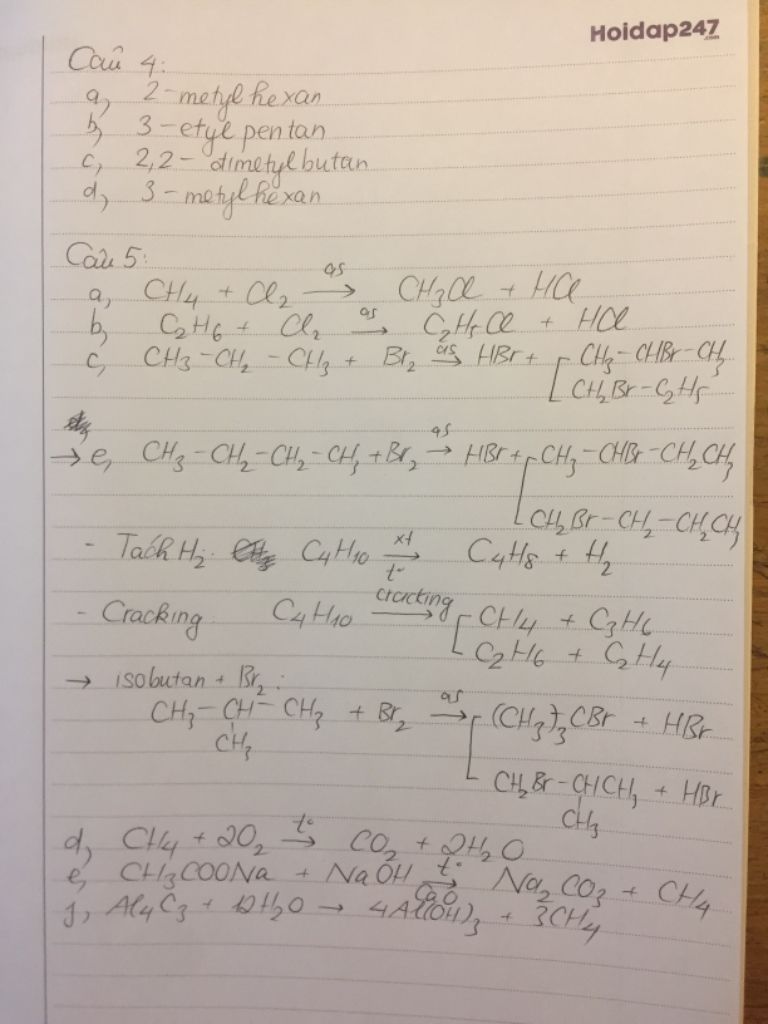 Hoidap247.com
Câu 4:
a, 2-metylhexan
b, 3-etylpentan
c, 2,2-dimetylbutan
d, 3-metylhexan
Câu 5:
a, CH4 + Cl2 →(as) CH3Cl + HCl
b, C2H6 + Cl2 →(as) C2H5Cl + HCl
c, CH3-CH2-CH3 + Br2 →(as) HBr + [ CH3-CHBr-CH3
CH2Br-C2H5
→ e, CH3-CH2-CH2-CH3 + Br2 →(as) HBr + [ CH3-CHBr-CH2CH3
CH2Br-CH2-CH2CH3
- Tách H2: C4H10 →(xt, t°) C4H8 + H2
- Cracking C4H10 →(cracking) [ CH4 + C3H6
C2H6 + C2H4
→ isobutan + Br2:
CH3-CH-CH3 + Br2 →(as) [ (CH3)3CBr + HBr
CH3
CH2Br-CHCH3 + HBr
CH3
d, CH4 + 2O2 →(t°) CO2 + 2H2O
e, CH3COONa + NaOH →(t°, CaO) Na2CO3 + CH4
f, Al4C3 + 12H2O → 4Al(OH)3 + 3CH4